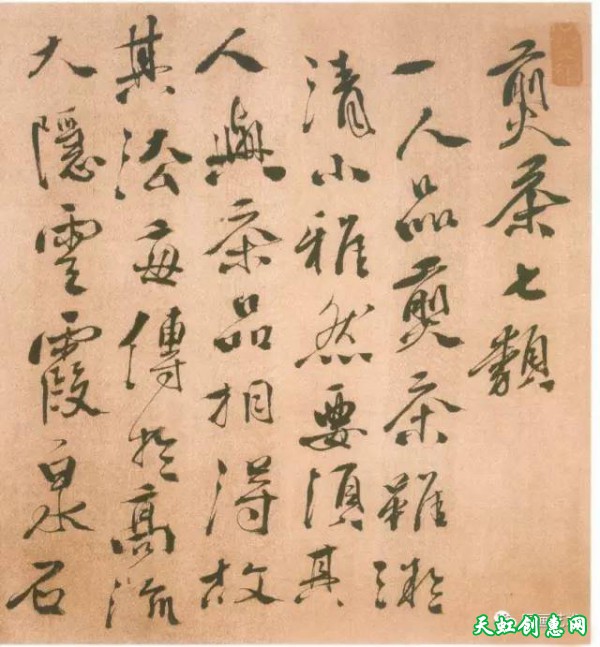 煎茶七類
一人品煎茶雖凝
清小雅然要須其
人與茶品相得故
其法每傳於高流
大隱雲霞泉石
天虹创惠网